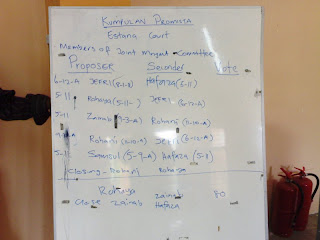 KUMPULAN PROMOTA
Estana Court
Members of Joint Mngmt Committee
Proposer Seconder Vote
6-12-A JEFRI (5-1-8) Hafaza (6-11)
5-11 Rohaya (5-11- ) JEFRI (6-12-A)
5-11 Zainab (9-3-A) Rohani (11-10-A)
Rohani JEFRI (6-12-A)
5-11 Samsul (5-9-A) Hafaza (5-11)
Closing - Rohani Rohaya
Rohaya Zainab
Close Zainab Hafaza